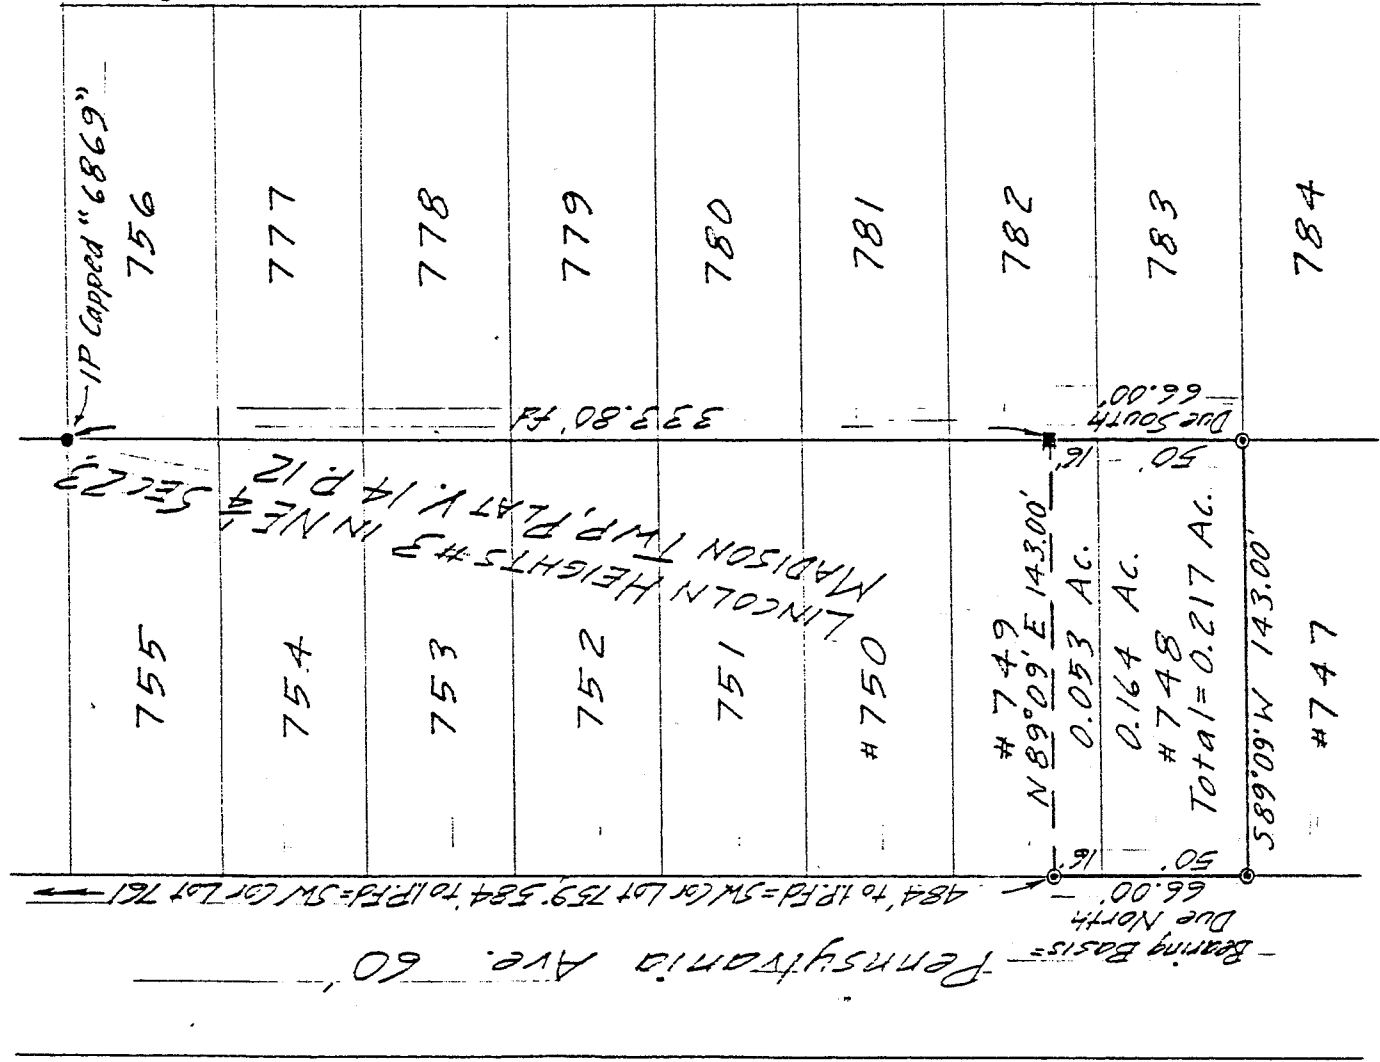 IP Capped "6869"
756
777
778
779
780
781
782
783
784
333.80' fd
Due South
66.00'
50'
16'
LINCOLN HEIGHTS #3 IN NE 1/4 SEC 23,
MADISON TWP, PLAT V. 14 P. 12
755
754
753
752
751
#750
#749
N 89°09' E 143.00'
0.053 Ac.
0.164 Ac.
#748
Total = 0.217 Ac.
S89°09'W 143.00'
#747
16'
50'
66.00'
Due North
Bearing Basis=
484' to I.P.Fd=SW Cor Lot 759, 584' to I.P.Fd=SW Cor Lot 761
Pennsylvania Ave. 60'